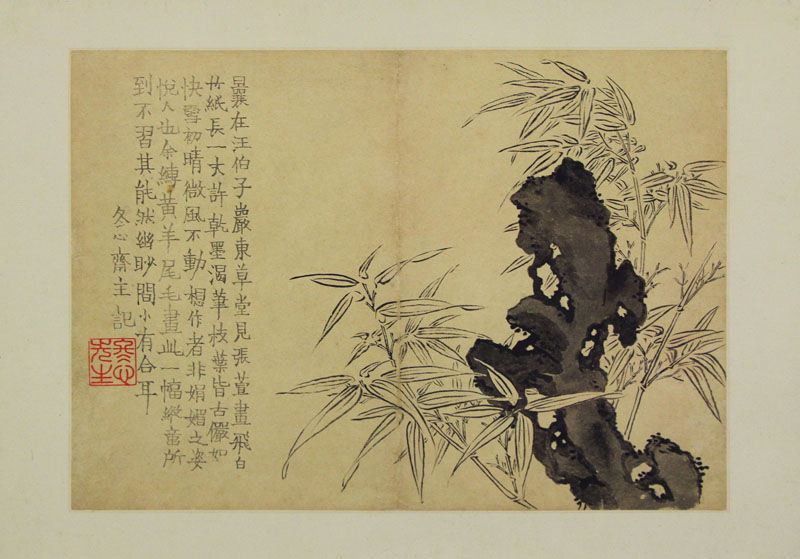 曩在汪伯子巖東草堂見張萱畫飛白
竹紙長一丈許乾墨渴筆枝葉皆古儼如
快雪初晴微風不動想作者非娟媚之姿
悅人也余縛黃羊尾毛畫此一幅縱意所
到不習其能然幽眇間小有合耳
冬心齋主記
冬心
先生